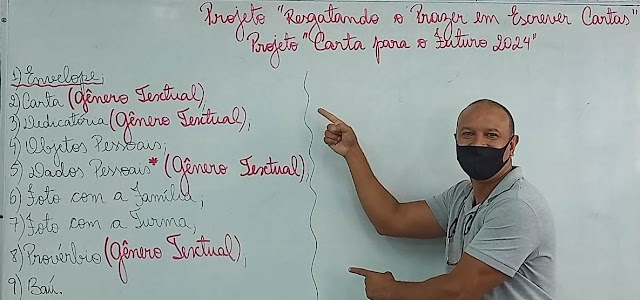 Projeto "Resgatando o Prazer em Escrever Cartas"
Projeto "Carta para o Futuro 2024"
1) Envelope;
2) Carta (Gênero Textual);
3) Dedicatória (Gênero Textual);
4) Objetos Pessoais;
5) Dados Pessoais* (Gênero Textual);
6) Foto com a Família;
7) Foto com a Turma;
8) Provérbio (Gênero Textual);
9) Baú.